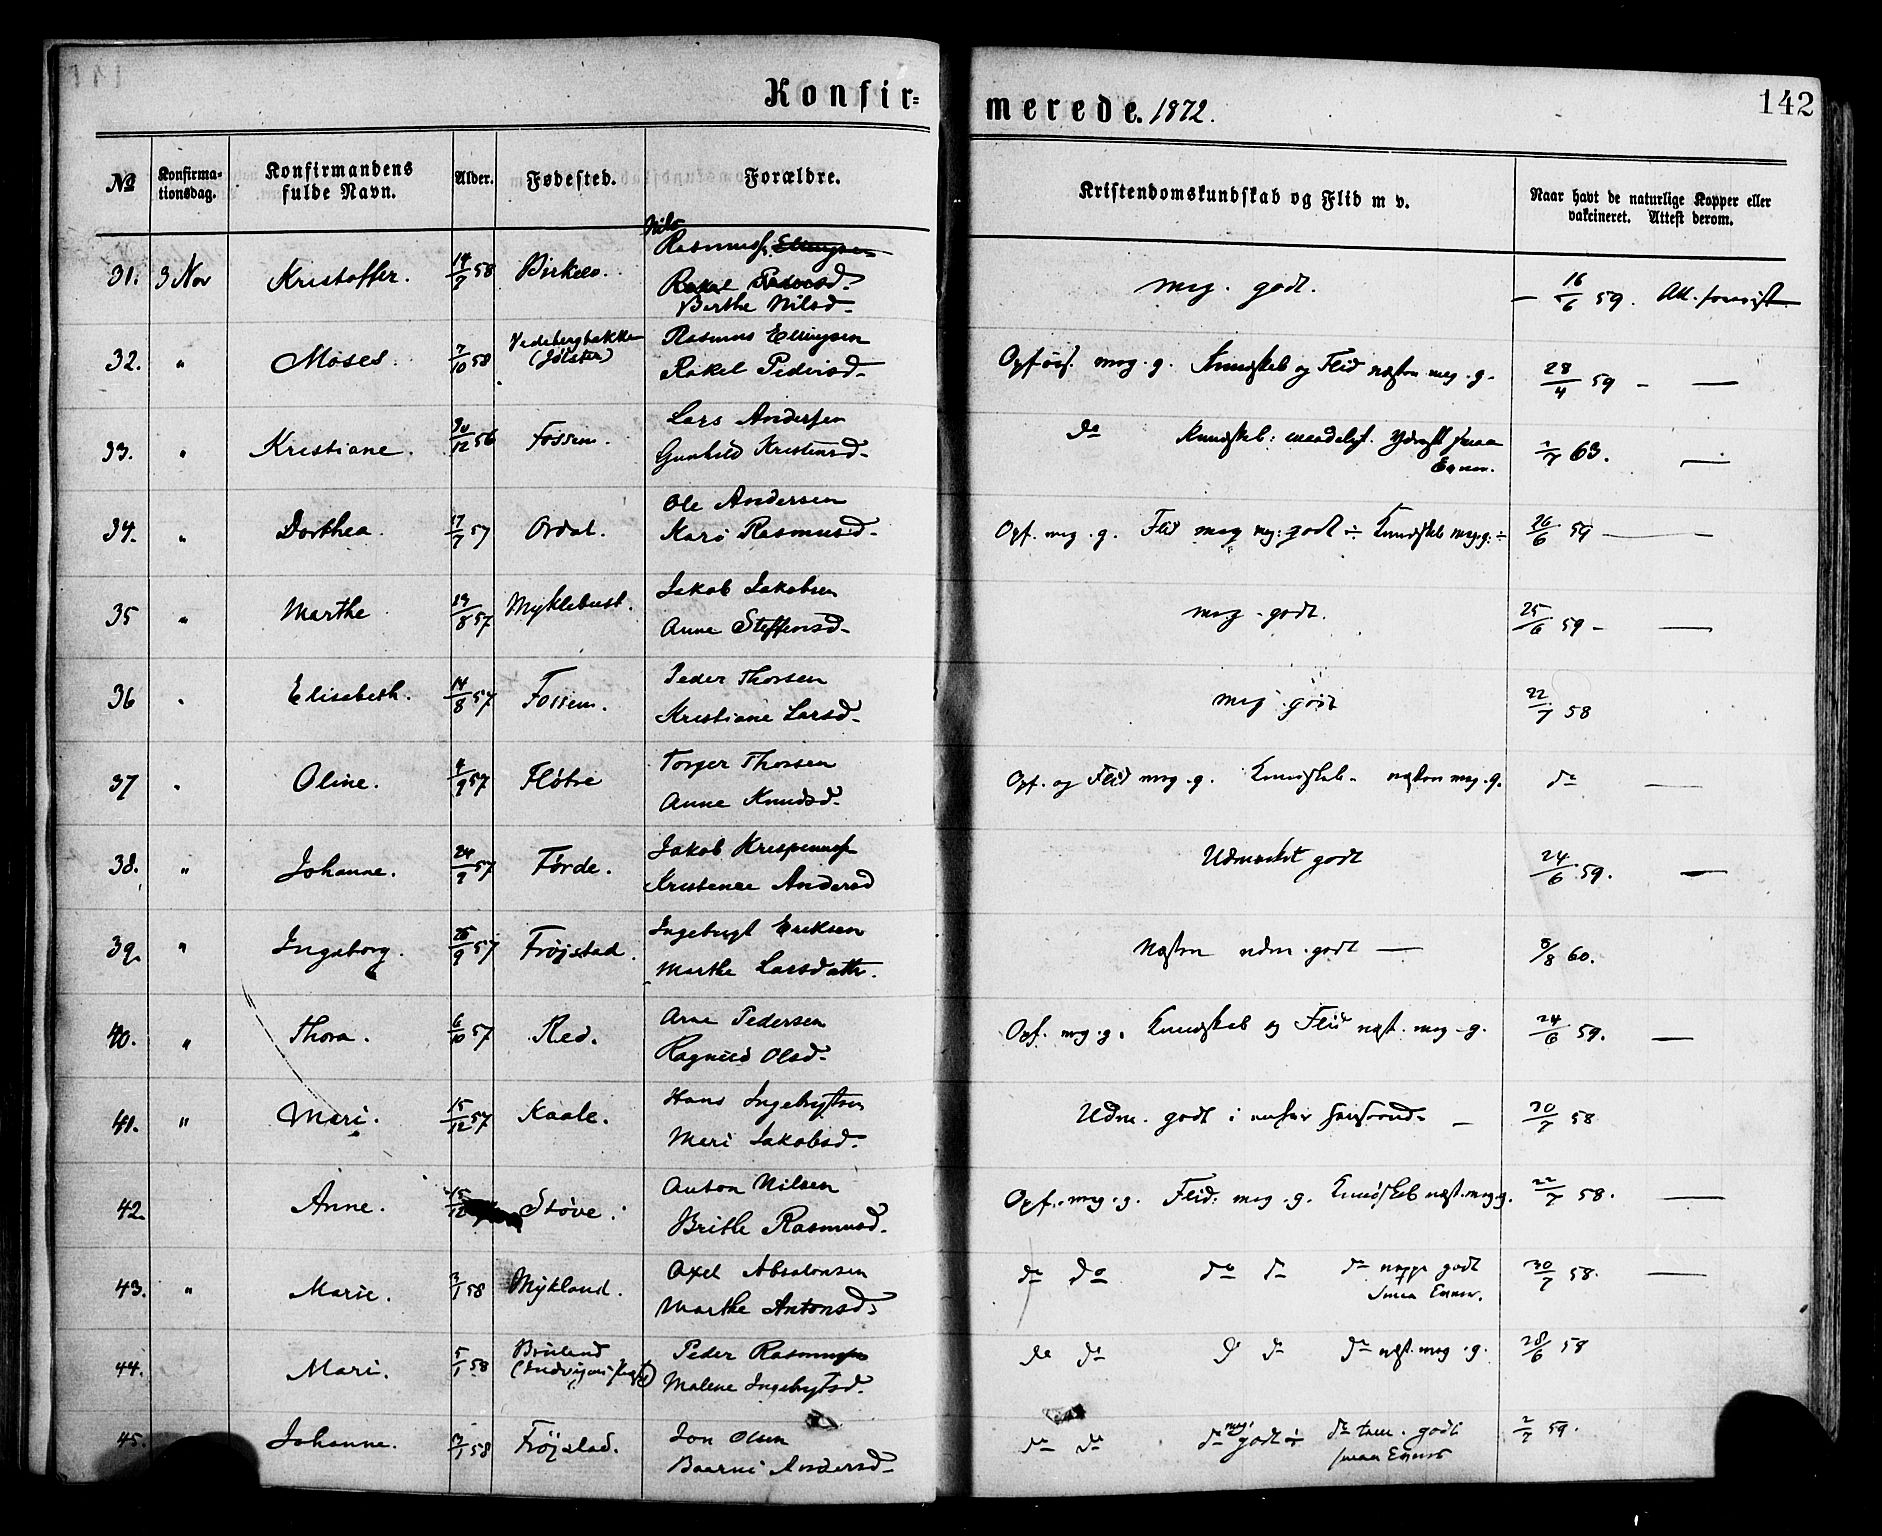 Konfir=
merede. 1872.
142
No
Konfirma=
tionsdag.
Konfirmandens
fulde Navn.
Alder.
Fødested.
Forældre.
Kristendomskundskab og Flid m v.
Naar havt de naturlige Kopper eller
vakcineret. Attest derom.
Nils
31. 3 Nov Kristoffer. 58 Birkelo. Rasmuss. Ellingsen meg. godt. 16/6 59.
Rakel Pedersd.
Berthe Nilsd.
32. " Moses. 7/10 58 (Jølster) Rasmus Ellingsen
Rakel Pedersd. Kundskab og Flid næsten meg. g. 28/4 59 –
33. " Kristiane. 30/12 56 Fossem. Lars Andersen
Gunhild Kristensd. do Kundskab: maadeligt. Yderst smaa
Evner. 63. —
34. " Dorthea 17/7 57 Ordal. Ole Andersen
Kari Rasmusd. Opf. meg. g. Flid meg: godt ÷ Kundskab meg. g: ÷ 26/6 59 —
35 " Marthe 19/8 57 Myklebust. Jakob Jakobsen
Anne Steffensd. meg. godt. 25/6 59 – —
36 " Elisabeth. 14/8 57 Fossem. Peder Thorsen
Kristiane Larsd. meg. godt 22/7 58
37 " Oline. 4/9 57 Fløtre Torger Thorsen
Anne Knudsd. Opf. og Flid meg. g. Kundskab næsten meg. g. do —
38. " Johanne. 24/9 57 Førde. Jakob
Andersd Udmærket godt 24/6 59. —
39. " Ingeborg. 9 57 Frøjstad. Ingebrigt Eriksen
Marthe Larsdatter. Næsten udm. godt — 8 60.
40. " Thora. 6/10 57 Red. Arne Pedersen
Ragnild Olsd. Opf. meg. g. Kundskab og Flid næst. meg. g. 24/6 59. —
41. " Mari. 15/12 57 Kaale. Hans Ingebrigtsen
Mari Jakobsd. Udm. godt i enhver Henseende. – 30/7 58
42. Anne. 15/12 Støve. Anton Nilsen
Brithe Rasmusd. Opf. meg. g. Flid: meg. g. Kundskab næst. meg. g. 22/7 58. —
43. " Marie. 3/1 58 Mykland. Axel Absalonsen
Marthe Antonsd. do do do do do neppe godt
Smaa Evner. 30/7 58. —
44. Mari. 5/1 58 Bruland Peder Rasmussen
Malene Ingebrigtsd. do do do do do næst. meg. g. 28/6 58
45. Johanne. 58 Frøjstad. Jon Olsen
Andersd. do do do meg: godt ÷ do tem. godt
smaa Evner 59.